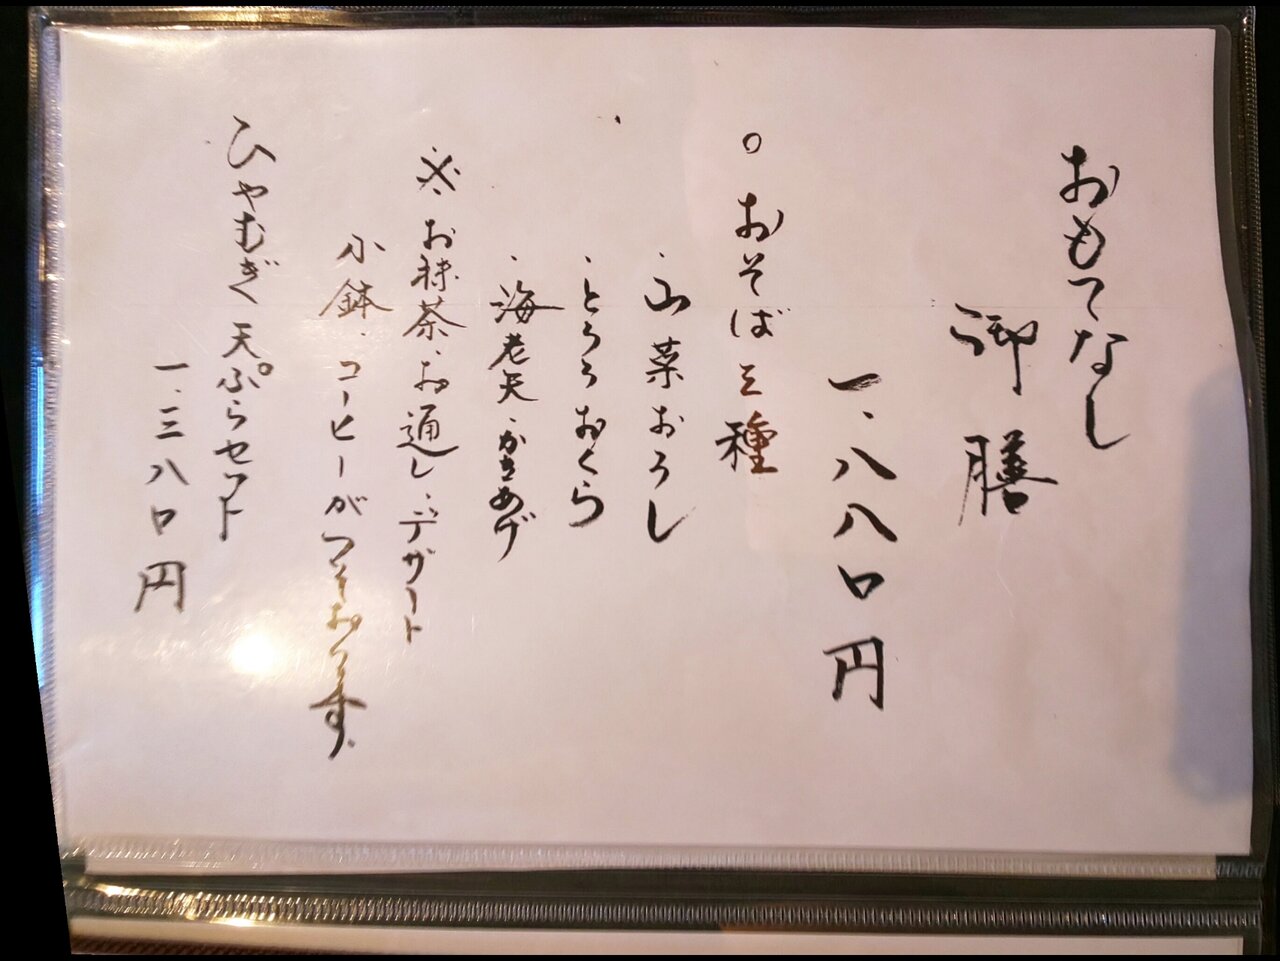 おもてなし
御膳
一、八八〇円
○おそば三種
・山菜おろし
・とろろおくら
・海老天・かきあげ
※お抹茶・お通し・デザート
小鉢・コーヒーがついております。
ひやむぎ天ぷらセット
一、三八〇円